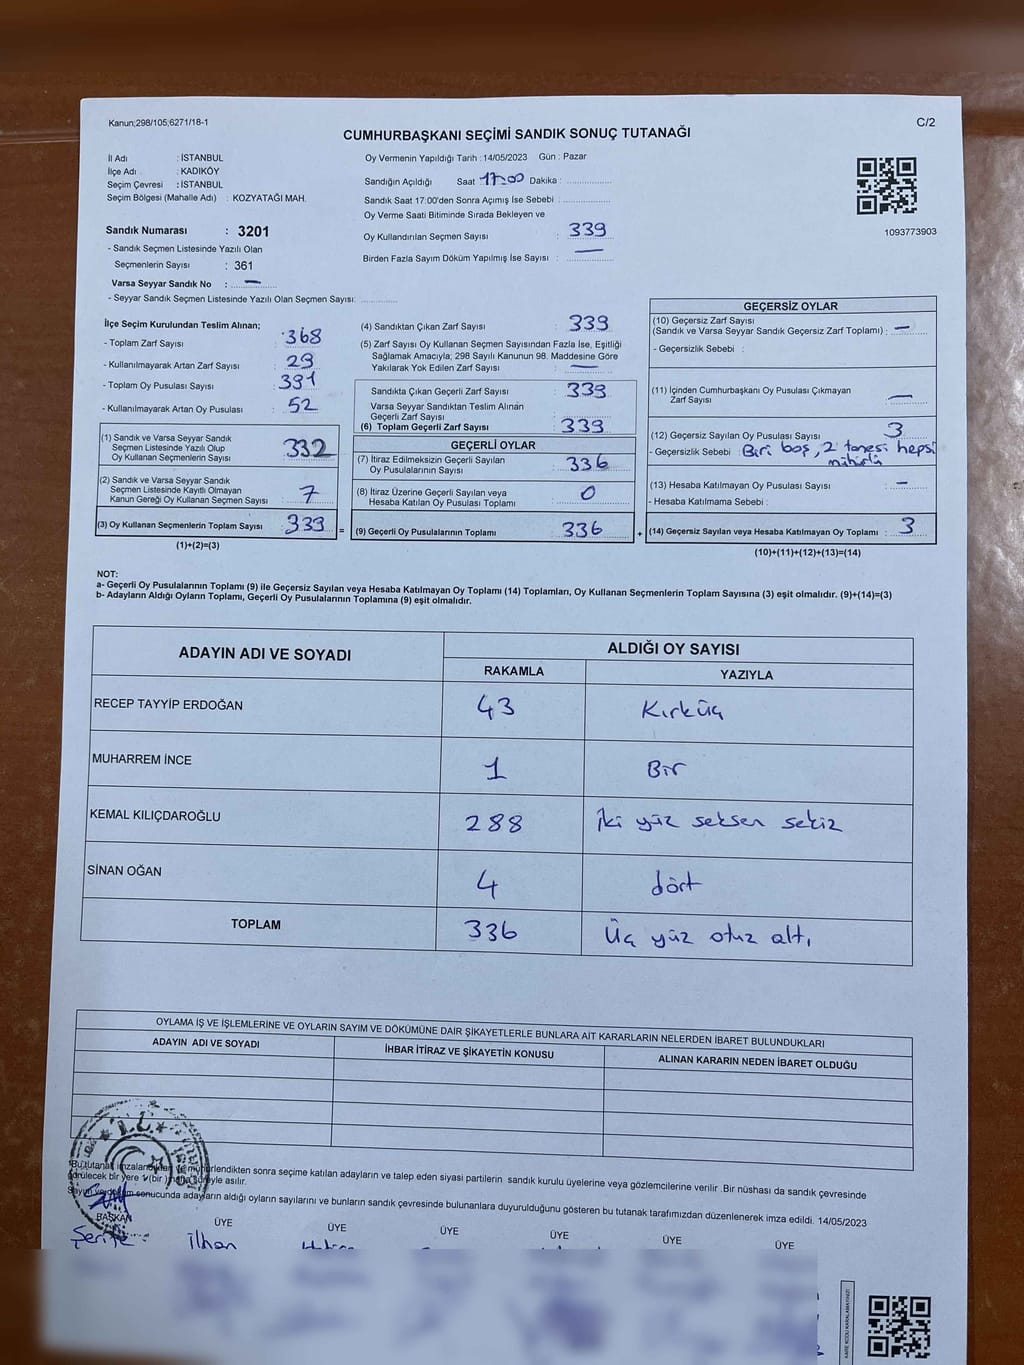 Kanun;298/105;6271/18-1
C/2
CUMHURBAŞKANI SEÇİMİ SANDIK SONUÇ TUTANAĞI
İl Adı : İSTANBUL
İlçe Adı : KADIKÖY
Seçim Çevresi : İSTANBUL
Seçim Bölgesi (Mahalle Adı) : KOZYATAĞI MAH.
Sandık Numarası : 3201
- Sandık Seçmen Listesinde Yazılı Olan
Seçmenlerin Sayısı : 361
Varsa Seyyar Sandık No : —
- Seyyar Sandık Seçmen Listesinde Yazılı Olan Seçmen Sayısı: ............
Oy Vermenin Yapıldığı Tarih : 14/05/2023 Gün : Pazar
Sandığın Açıldığı Saat 17:00 Dakika : ............
Sandık Saat 17:00'den Sonra Açımış İse Sebebi ............
Oy Verme Saati Bitiminde Sırada Bekleyen ve
Oy Kullandırılan Seçmen Sayısı : 339
Birden Fazla Sayım Döküm Yapılmış İse Sayısı : —
1093773903
İlçe Seçim Kurulundan Teslim Alınan;
- Toplam Zarf Sayısı : 368
- Kullanılmayarak Artan Zarf Sayısı : 29
- Toplam Oy Pusulası Sayısı : 391
- Kullanılmayarak Artan Oy Pusulası : 52
(1) Sandık ve Varsa Seyyar Sandık
Seçmen Listesinde Yazılı Olup
Oy Kullanan Seçmenlerin Sayısı : 332
(2) Sandık ve Varsa Seyyar Sandık
Seçmen Listesinde Kayıtlı Olmayan
Kanun Gereği Oy Kullanan Seçmen Sayısı : 7
(3) Oy Kullanan Seçmenlerin Toplam Sayısı : 339
(1)+(2)=(3)
(4) Sandıktan Çıkan Zarf Sayısı : 339
(5) Zarf Sayısı Oy Kullanan Seçmen Sayısından Fazla İse, Eşitliği
Sağlamak Amacıyla; 298 Sayılı Kanunun 98. Maddesine Göre
Yakılarak Yok Edilen Zarf Sayısı : —
Sandıkta Çıkan Geçerli Zarf Sayısı : 339
Varsa Seyyar Sandıktan Teslim Alınan
Geçerli Zarf Sayısı :
(6) Toplam Geçerli Zarf Sayısı : 339
GEÇERLİ OYLAR
(7) İtiraz Edilmeksizin Geçerli Sayılan
Oy Pusulalarının Sayısı : 336
(8) İtiraz Üzerine Geçerli Sayılan veya
Hesaba Katılan Oy Pusulaları Toplamı : 0
= (9) Geçerli Oy Pusulalarının Toplamı : 336
GEÇERSİZ OYLAR
(10) Geçersiz Zarf Sayısı
(Sandık ve Varsa Seyyar Sandık Geçersiz Zarf Toplamı) : —
- Geçersizlik Sebebi :
(11) İçinden Cumhurbaşkanı Oy Pusulası Çıkmayan
Zarf Sayısı : —
(12) Geçersiz Sayılan Oy Pusulası Sayısı : 3
- Geçersizlik Sebebi : Biri boş, 2 tanesi hepsi
mühürlü
(13) Hesaba Katılmayan Oy Pusulası Sayısı : —
- Hesaba Katılmama Sebebi :
+ (14) Geçersiz Sayılan veya Hesaba Katılmayan Oy Toplamı : 3
(10)+(11)+(12)+(13)=(14)
NOT:
a- Geçerli Oy Pusulalarının Toplamı (9) ile Geçersiz Sayılan veya Hesaba Katılmayan Oy Toplamı (14) Toplamları, Oy Kullanan Seçmenlerin Toplam Sayısına (3) eşit olmalıdır. (9)+(14)=(3)
b- Adayların Aldığı Oyların Toplamı, Geçerli Oy Pusulalarının Toplamına (9) eşit olmalıdır.
ADAYIN ADI VE SOYADI ALDIĞI OY SAYISI
RAKAMLA YAZIYLA
RECEP TAYYİP ERDOĞAN 43 Kırküç
MUHARREM İNCE 1 Bir
KEMAL KILIÇDAROĞLU 288 İki yüz seksen sekiz
SİNAN OĞAN 4 dört
TOPLAM 336 Üç yüz otuz altı
OYLAMA İŞ VE İŞLEMLERİNE VE OYLARIN SAYIM VE DÖKÜMÜNE DAİR ŞİKAYETLERLE BUNLARA AİT KARARLARIN NELERDEN İBARET BULUNDUKLARI
ADAYIN ADI VE SOYADI İHBAR İTİRAZ VE ŞİKAYETİN KONUSU ALINAN KARARIN NEDEN İBARET OLDUĞU
*Bu tutanak imzalandıktan ve mühürlendikten sonra seçime katılan adayların ve talep eden siyasi partilerin sandık kurulu üyelerine veya gözlemcilerine verilir .Bir nüshası da sandık çevresinde
görülecek bir yere (bir) süreyle asılır.
Sayım ve döküm sonucunda adayların aldığı oyların sayılarını ve bunların sandık çevresinde bulunanlara duyurulduğunu gösteren bu tutanak tarafımızdan düzenlenerek imza edildi. 14/05/2023
T.C.
BAŞKAN ÜYE ÜYE ÜYE ÜYE ÜYE ÜYE
Şerife İlhan